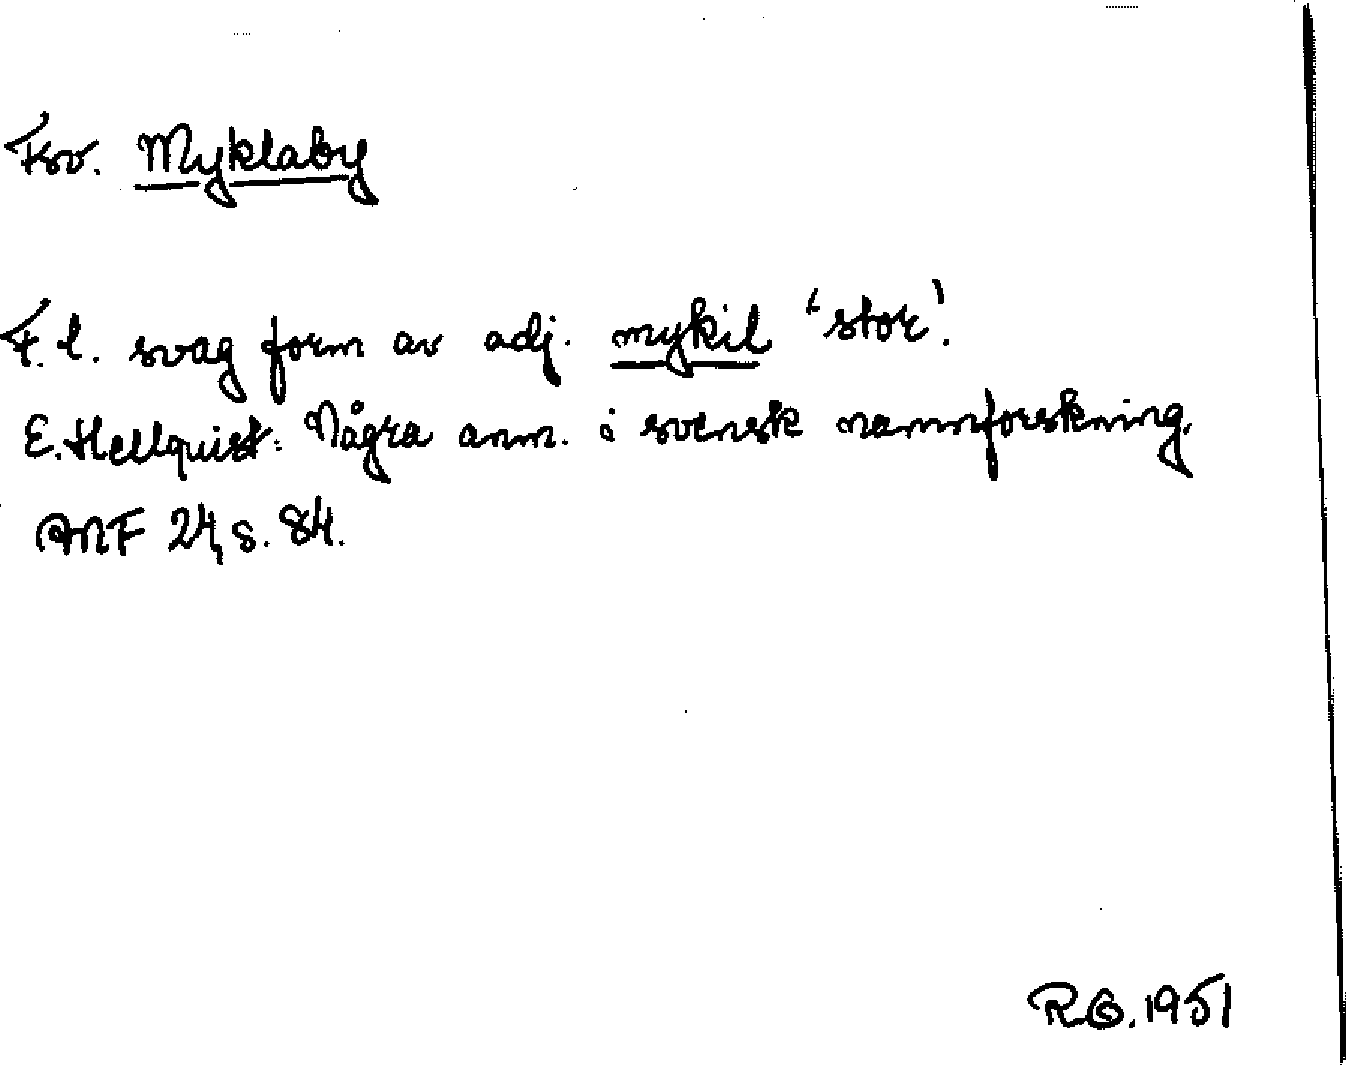 Fsv. Myklaby
F. l. svag form av adj. mykil 'stor'.
E. Hellquist: Några anm. i svensk namnforskning.
ANF 24, s. 84.
R.G. 1951